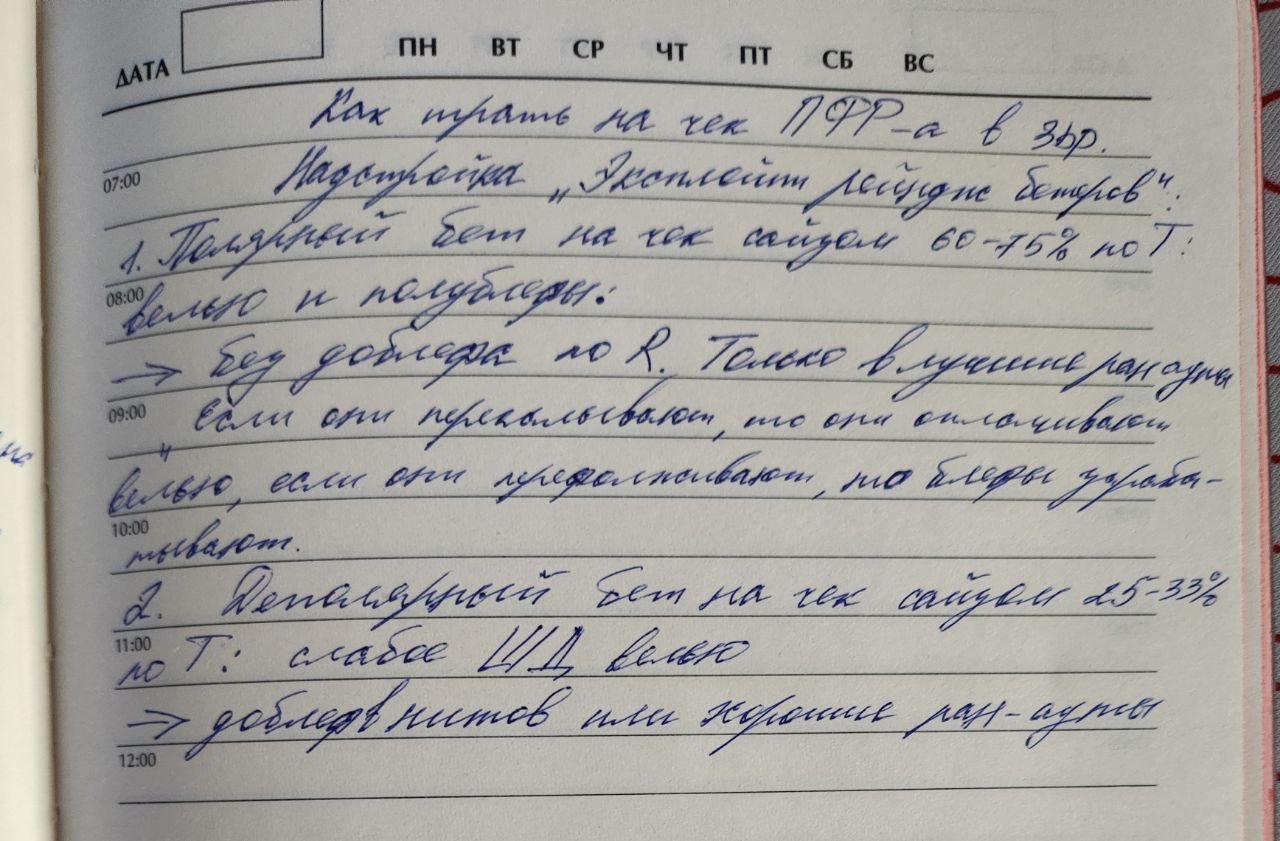 ДАТА ПН ВТ СР ЧТ ПТ СБ ВС
Как играть на чек ПФР-а в 3bp.
07:00
Надстройка „Эксплойт рейндж бетеров":
1. Полярный бет на чек сайзом 60-75% по T:
08:00
велью и полублефы:
→ без доблефа по R. Только в лучшие ранауты
09:00
"Если они переколывают, то они оплачивают
велью, если они перефолживают, то блефы зараба-
10:00
тывают.
2. Деполярный бет на чек сайзом 25-33%
11:00
по T: слабое ШД велью
→ доблеф в нитов или хорошие ран-ауты
12:00